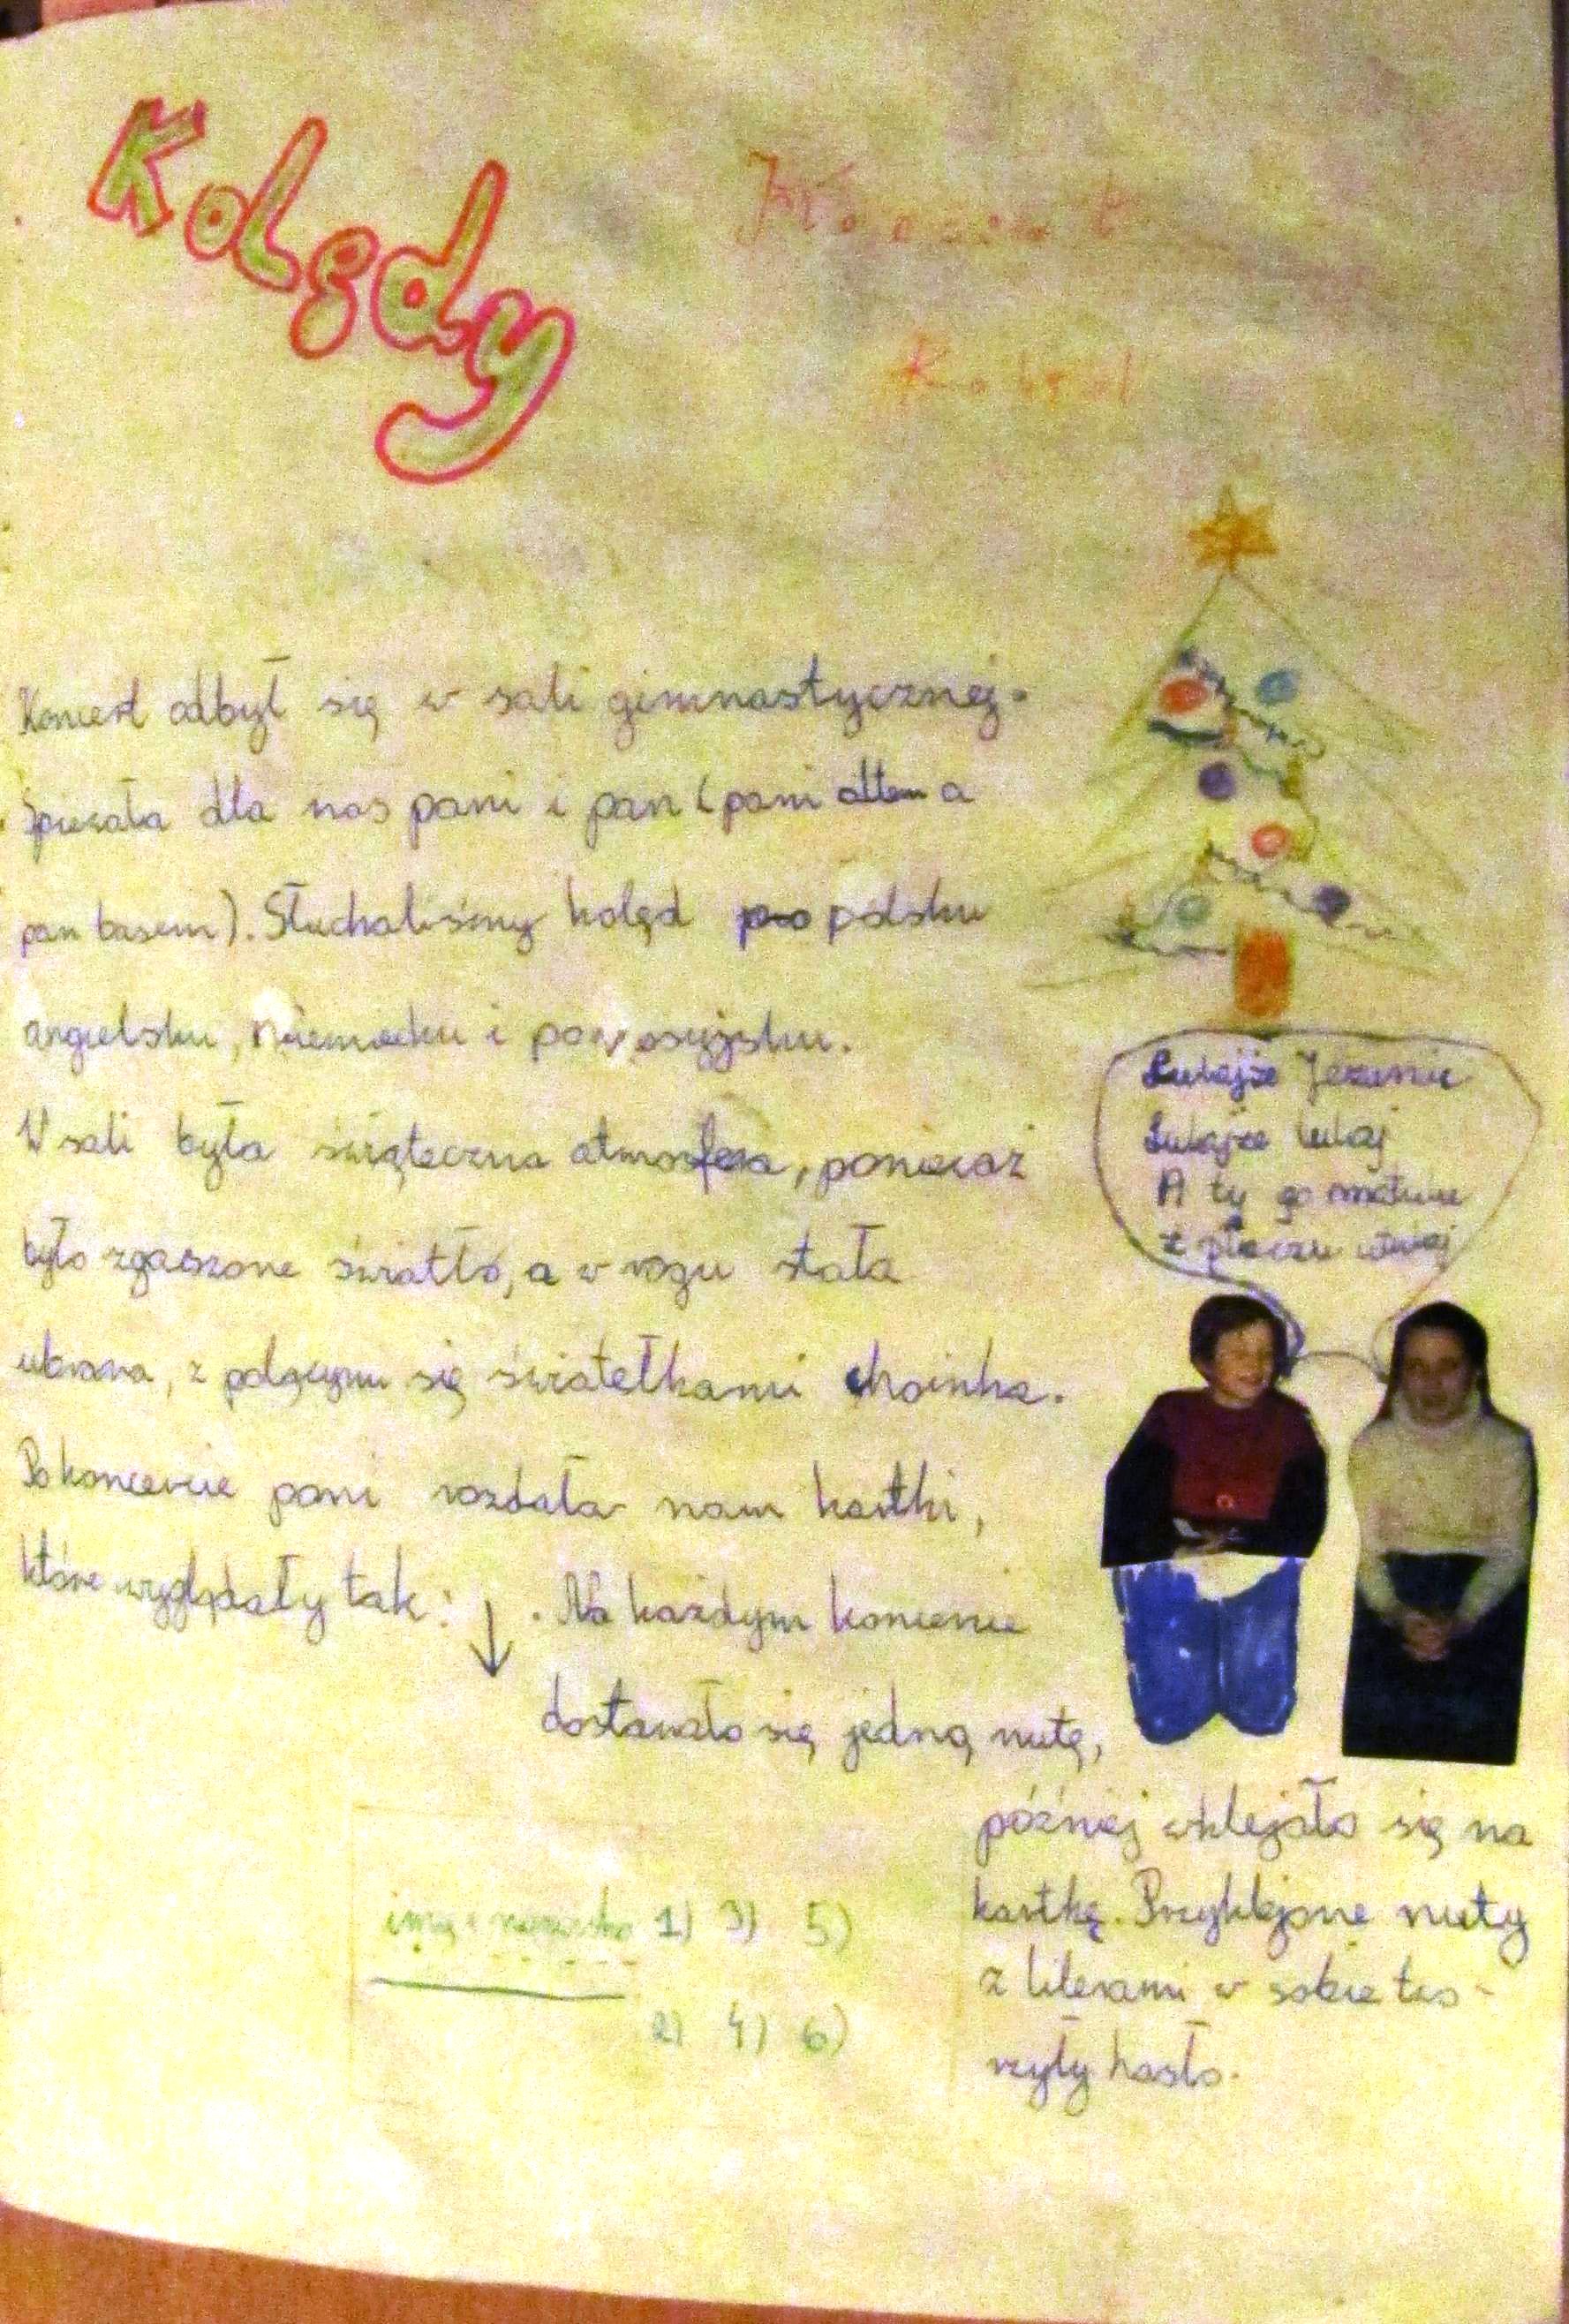 Kolędy
Koncert
Kolęd
Koncert odbył się w sali gimnastycznej.
Śpiewała dla nas pani i pan (pani altem a
pan basem). Słuchaliśmy kolęd po polsku
angielsku, niemiecku i po rosyjsku.
W sali była świąteczna atmosfera, ponieważ
było zgaszone światło, a w rogu stała
ubrana, z palącymi się światełkami choinka.
Po koncercie pani rozdała nam kartki,
które wyglądały tak: ↓ . Na każdym koncercie
dostawało się jedną nutę,
później wklejało się na
kartkę. Przyklejone nuty
z literami w sobie two-
rzyły hasło.
imię i nazwisko 1) 3) 5)
2) 4) 6)
Lulajże Jezuniu
Lulajże lulaj
A ty go matulu
z płaczu utulaj